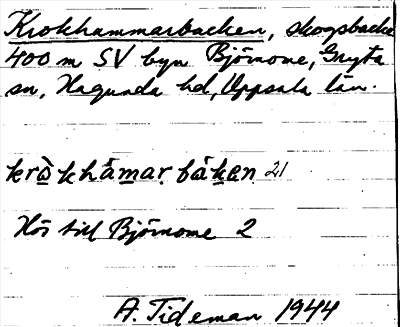 Krokhammarbacken, skogsbacke
400 m SV byn Björnome, Gryta
sn, Hagunda hd, Uppsala län.
kròkhámar báken 21
Hör till Björnome 2
A. Tideman 1944